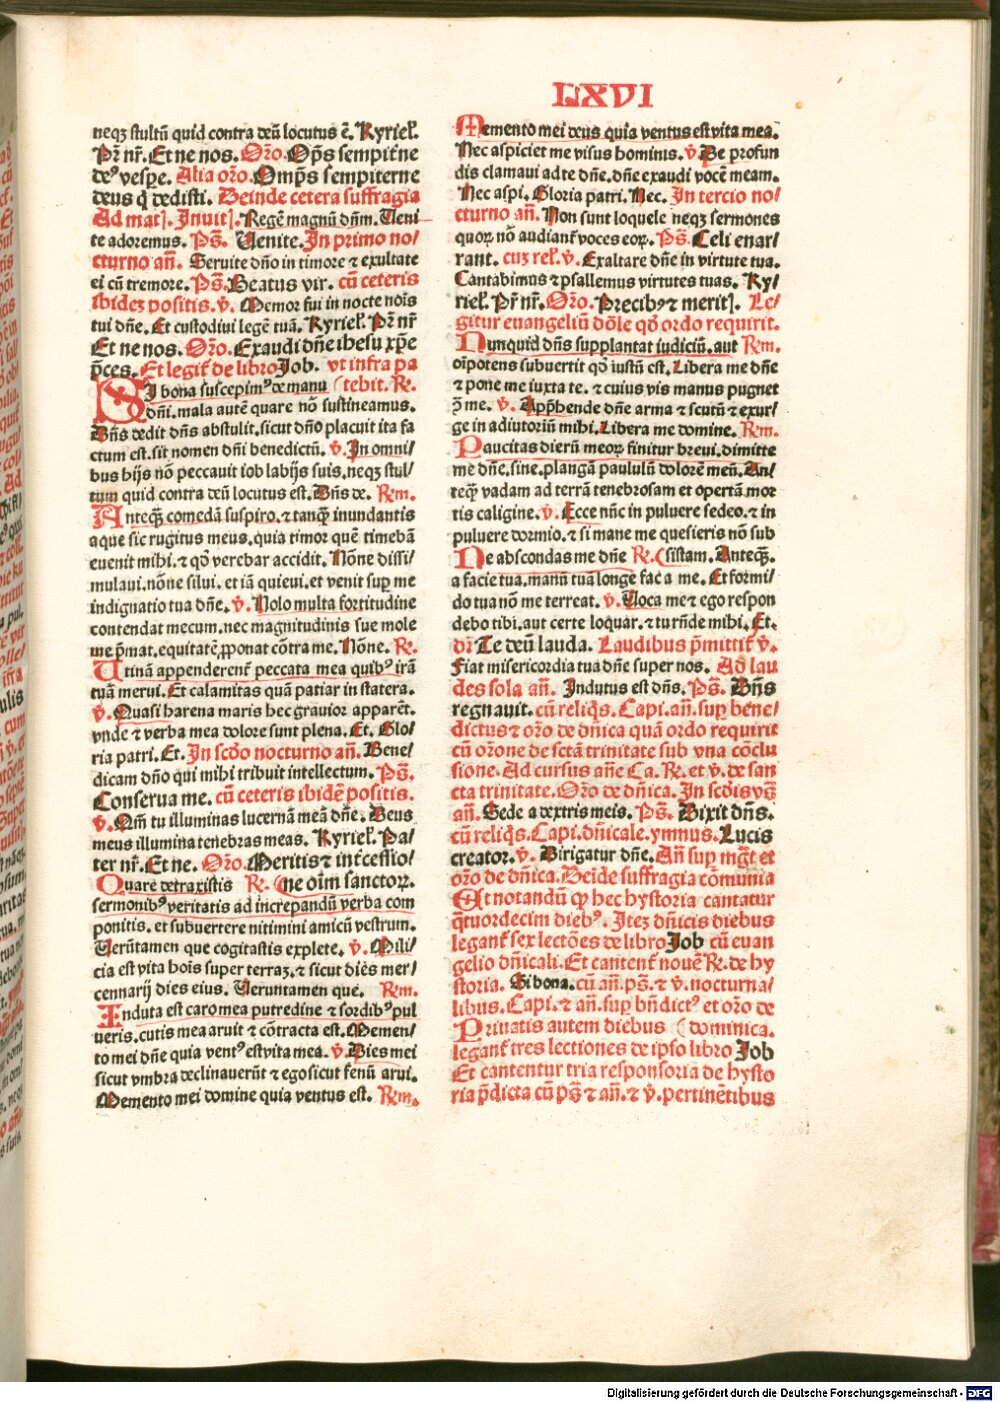 LXVI
neqꝫ stultū quid contra deū locutus ē. Kyriel̄.
Pr̄ nr̄. Et ne nos. Or̄o. Op̄s sempit̄ne
deꝰ vespe. Alia or̄o. Omp̄s sempiterne
deus q̄ dedisti. Deinde cetera suffragia
Ad matꝭ. Inuitꝭ. Regē magnū dn̄m. Ueni
te adoremus. Ps̄. Uenite. In primo no/
cturno an̄. Seruite dn̄o in timore ⁊ exultate
ei cū tremore. Ps̄. Beatus vir. cū ceteris
ibidez positis. v̄. Memor fui in nocte nois
tui dn̄e. Et custodiui legē tuā. Kyriel̄. Pr̄ nr̄
Et ne nos. Or̄o. Exaudi dn̄e ihesu xp̄e
p̄ces. Et legit̄ de libro Job. vt infra pa
Si bona suscepimꝰ de manu (tebit. R̄.
dn̄i. mala autē quare nō sustineamus.
Dn̄s dedit dn̄s abstulit. sicut dn̄o placuit ita fa
ctum est. sit nomen dn̄i benedictū. v̄. In omni/
bus hijs nō peccauit iob labijs suis. neqꝫ stul/
tum quid contra deū locutus est. Dn̄s de. R̄m.
Anteqꝫ comedā suspiro. ⁊ tanqꝫ inundantis
aque sic rugitus meus. quia timor quē timebā
euenit mihi. ⁊ qō verebar accidit. Nōne dissi/
mulaui. nōne silui. et iā quieui. et venit sup me
indignatio tua dn̄e. v̄. Nolo multa fortitudine
contendat mecum. nec magnitudinis sue mole
me p̄mat. equitatē ꝓponat cōtra me. Nōne. R̄.
Utinā appenderent̄ peccata mea quibꝰ irā
tuā merui. Et calamitas quā patiar in statera.
v̄. Quasi harena maris hec grauior apparēt.
vnde ⁊ verba mea dolore sunt plena. Et. Glo/
ria patri. Et. In scd̄o nocturno an̄. Bene/
dicam dn̄o qui mihi tribuit intellectum. Ps̄.
Conserua me. cū ceteris ibidē positis.
v̄. Qm̄ tu illuminas lucernā meā dn̄e. Deus
meus illumina tenebras meas. Kyriel̄. Pa/
ter nr̄. Et ne. Or̄o. Meritis ⁊ int̄cessio/
Quare detraxistis R̄. (ne oīm sanctoꝝ.
sermonibꝰ veritatis ad increpandū verba com
ponitis. et subuertere nitimini amicū vestrum.
Uerūtamen que cogitastis explete. v̄. Mili/
cia est vita hoīs super terraꝫ. ⁊ sicut diēs mer/
cennarij dies eius. Ueruntamen que. R̄m.
Induta est caro mea putredine ⁊ sordibꝰ pul
ueris. cutis mea aruit ⁊ cōtracta est. Memen/
to mei dn̄e quia ventꝰ est vita mea. v̄. Dies mei
sicut vmbra declinauerūt ⁊ ego sicut fenū arui.
Memento mei domine quia ventus est. R̄m.
Memento mei deus quia ventus est vita mea.
Nec aspiciet me visus hominis. v̄. De profun
dis clamaui ad te dn̄e. dn̄e exaudi vocē meam.
Nec aspi. Gloria patri. Nec. In tercio no/
cturno an̄. Non sunt loquele neqꝫ sermones
quoꝝ nō audiant̄ voces eoꝝ. Ps̄. Celi enar/
rant. cuꝫ rel̄. v̄. Exaltare dn̄e in virtute tua.
Cantabimus ⁊ psallemus virtutes tuas. Ky/
riel̄. Pr̄ nr̄. Or̄o. Precibꝰ ⁊ meritꝭ. Le/
gitur euangeliū dōle qō ordo requirit.
Nunquid dn̄s supplantat iudiciū. aut R̄m.
oīpotens subuertit qō iustū est. Libera me dn̄e
⁊ pone me iuxta te. ⁊ cuius vis manus pugnet
ꝯ me. v̄. App̄hende dn̄e arma ⁊ scutū ⁊ exur/
ge in adiutoriū mihi. Libera me domine. R̄m.
Paucitas dierū meoꝝ finitur breui. dimitte
me dn̄e. sine. plangā paululū dolorē meū. An/
teqꝫ vadam ad terrā tenebrosam et opertā mor
tis caligine. v̄. Ecce nūc in puluere sedeo. ⁊ in
puluere dormio. ⁊ si mane me quesieris nō sub
Ne abscondas me dn̄e R̄. (sistam. Anteqꝫ.
a facie tua. manū tuā longe fac a me. Et formi/
do tua nō me terreat. v̄. Uoca me ⁊ ego respon
debo tibi. aut certe loquar. ⁊ turn̄de mihi. Et.
dr̄ Te deū lauda. Laudibus p̄mittit̄ v̄.
Fiat misericordia tua dn̄e super nos. Ad lau
des sola an̄. Indutus est dn̄s. Ps̄. Dn̄s
regnauit. cū reliqs. Capi. an̄. sup bene/
dictus ⁊ or̄o de dn̄ica quā ordo requirit
cū or̄one de sctā trinitate sub vna cōclu
sione. Ad cursus an̄e Ca. R̄. et v̄. de san
cta trinitate. Or̄o de dn̄ica. In scd̄is vꝫ
an̄. Sede a dextris meis. Ps̄. Dixit dn̄s.
cū reliqs. Capi. dn̄icale. ymnus. Lucis
creator. v̄. Dirigatur dn̄e. An̄ sup mgt̄ et
or̄o de dn̄ica. Deīde suffragia cōmunia
Et notandū ꝙ hec hystoria cantatur
qtuordecim diebꝰ. Iteꝫ dn̄icis diebus
legant̄ sex lectōes de libro Job cū euan
gelio dn̄icali. Et cantent̄ nouē R̄. de hy
storia. Si bona. cū an̄. ps̄. ⁊ v̄. nocturna/
libus. Capi. ⁊ an̄. sup bn̄dictꝰ et or̄o de
Priuatis autem diebus (dominica.
legant̄ tres lectiones de ipso libro Job
Et cantentur tria responsoria de hysto
ria p̄dicta cū ps̄ ⁊ an̄. ⁊ v̄. pertinētibus
Digitalisierung gefördert durch die Deutsche Forschungsgemeinschaft - DFG